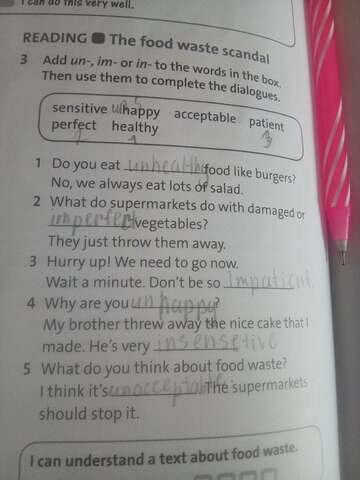 I can do this very well.
READING The food waste scandal
3 Add un-, im- or in- to the words in the box.
Then use them to complete the dialogues.
sensitive unhappy acceptable patient
perfect healthy
1 Do you eat unhealthy food like burgers?
No, we always eat lots of salad.
2 What do supermarkets do with damaged or
imperfect vegetables?
They just throw them away.
3 Hurry up! We need to go now.
Wait a minute. Don't be so impatient.
4 Why are you unhappy?
My brother threw away the nice cake that I
made. He's very insensetive
5 What do you think about food waste?
I think it's unacceptable. The supermarkets
should stop it.
I can understand a text about food waste.